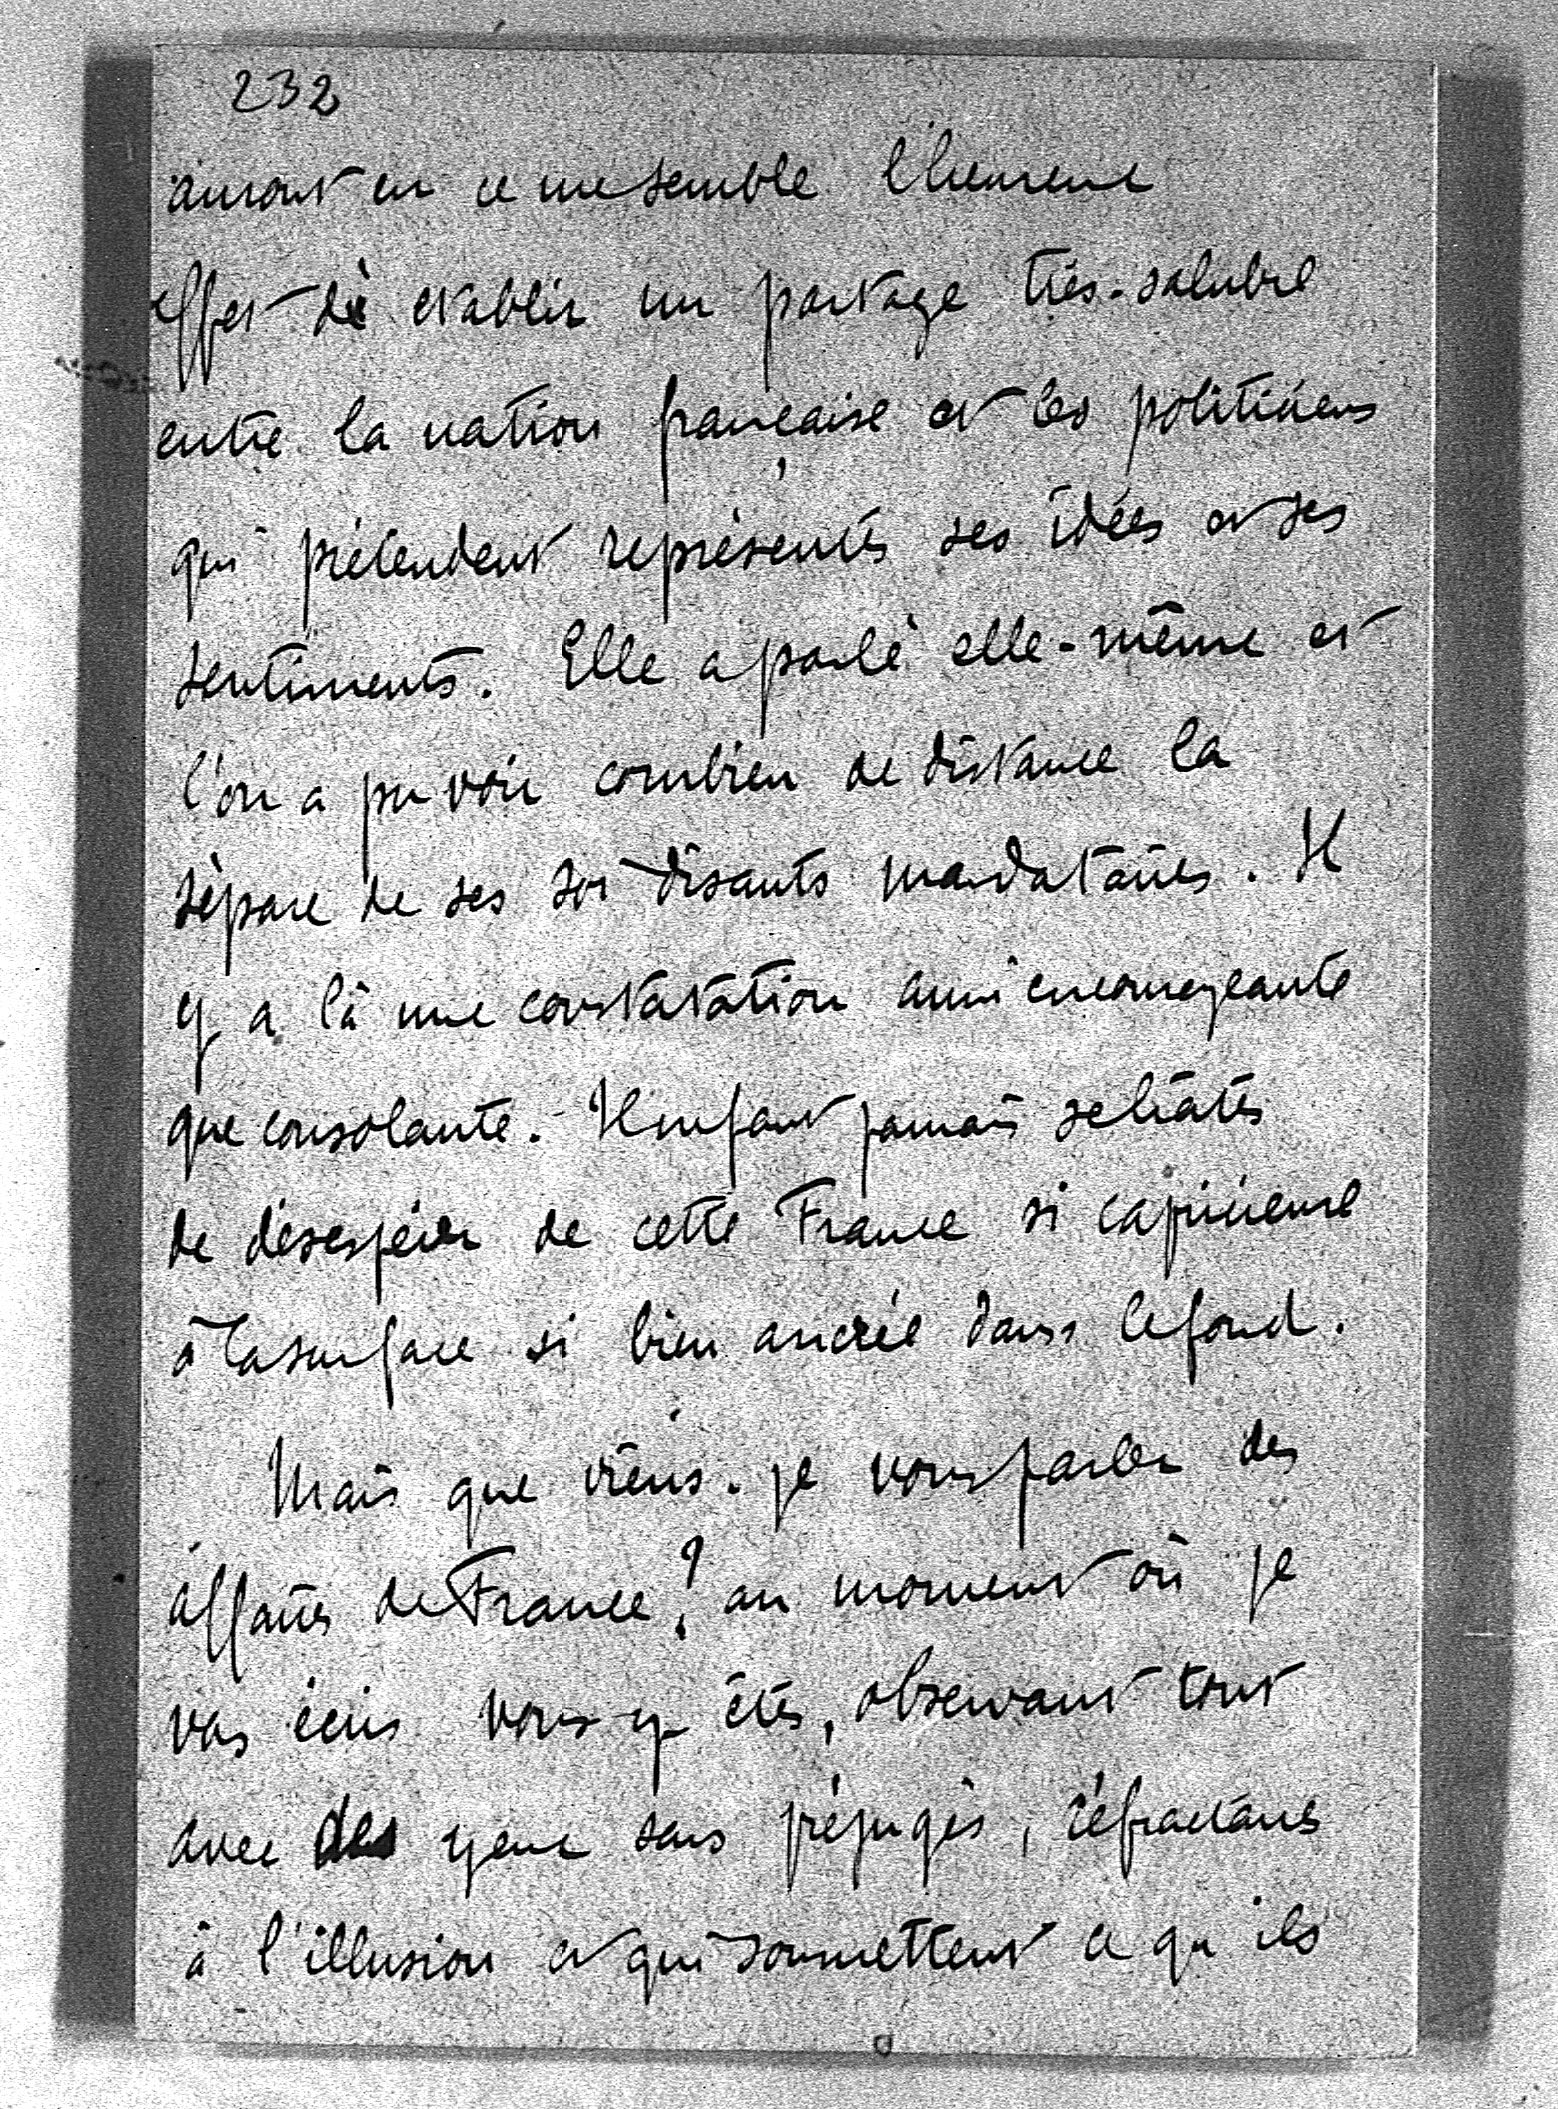 232
auront eu ce me semble l'heureux
effet de etablir un partage très-salubre
entre la nation française et les politiciens
qui prétendent représenter ses idées et ses
sentiments. Elle a parlé elle-même et
l'on a pu voir combien de distance la
sépare de ses soi disants mandataires. Il
y a là une constatation aussi encourageante
que consolante. Il ne faut jamais se hâter
de désespérer de cette France si capricieuse
à la surface si bien ancrée dans le fond.
Mais que viens-je vous parler des
affaires de France? au moment où je
vous écris vous y êtes, observant tout
avec des yeux sans préjugés, réfractaires
à l'illusion et qui soumettent ce qu'ils